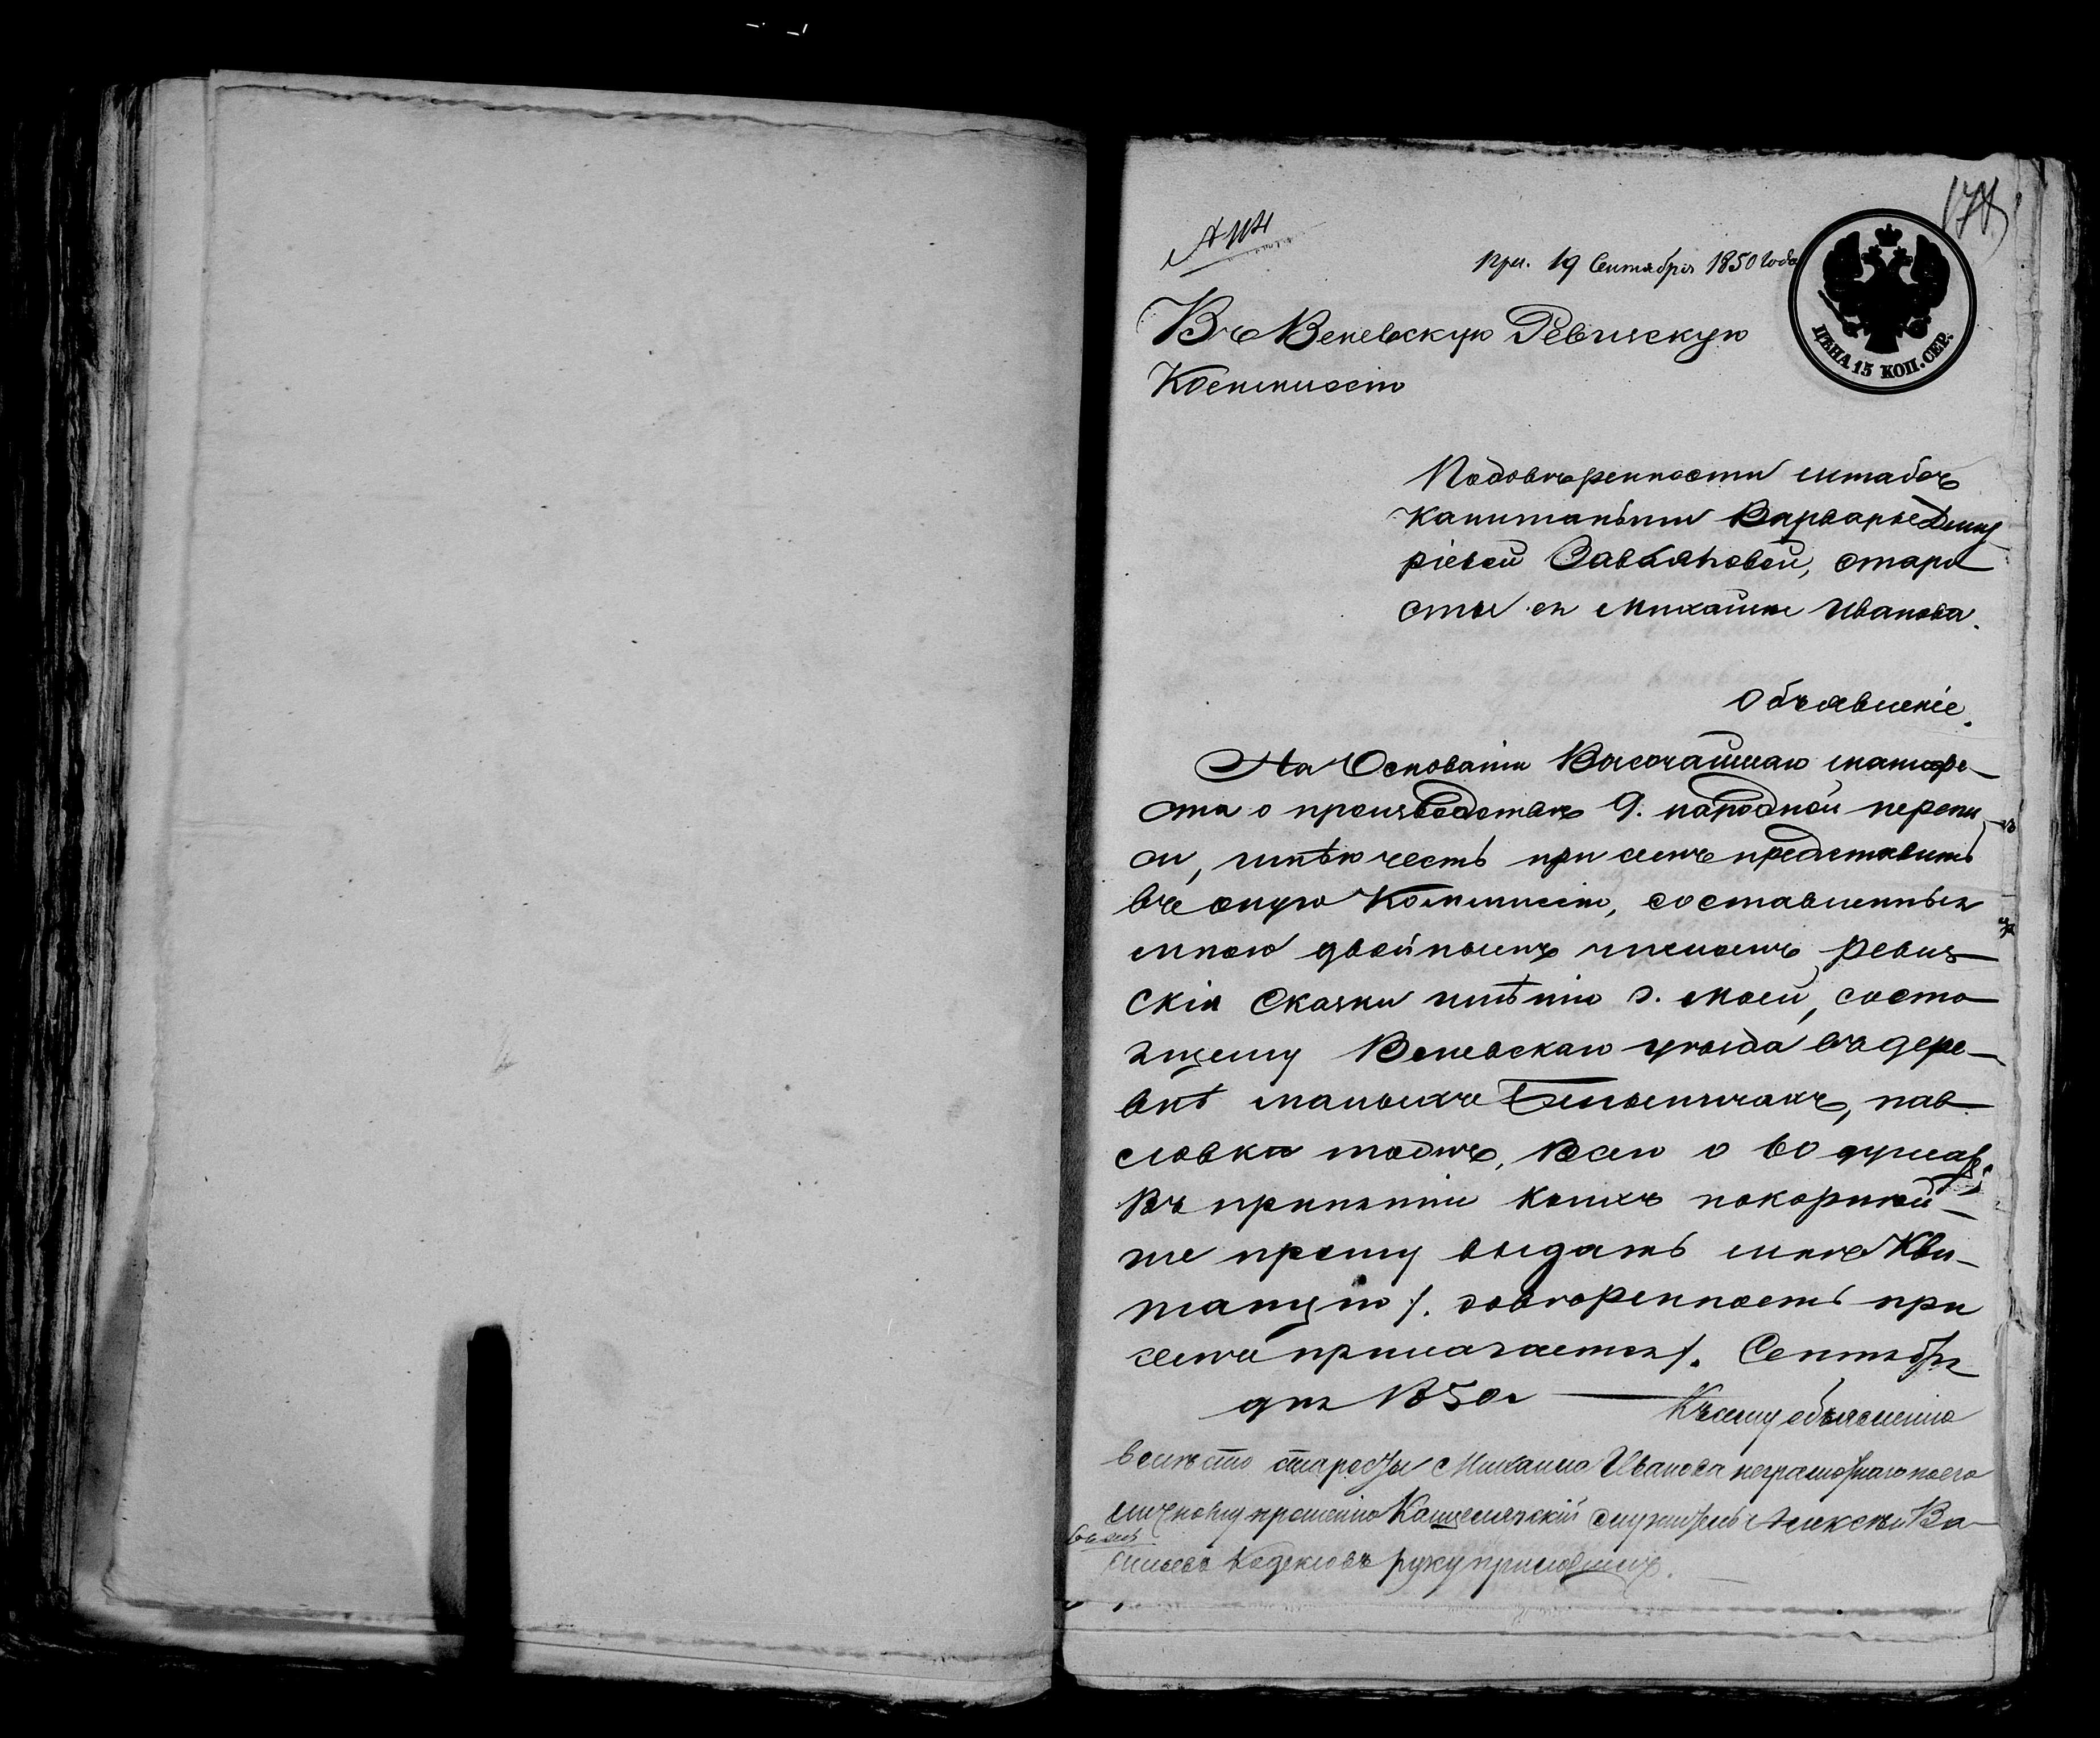 178
№ 114
при. 19 Сентября 1850 года
ЦѢНА 15 КОП. СЕР.
Въ Веневскую Ревизскую
Коммисію
Подовѣренности штабсъ
капитаньши Варвары Дмит
ріевой Завьяловой, старо
сты ея Михаилы Иванова.
Объявленіе.
На Основаніи Высочайшаго манифе-
ста о производствѣ 9. народной перепи
си, имѣю честь при семъ представить
въ оную Коммисію, составленныя
мною двойнымъ числомъ ревиз-
скія Сказки имѣнію г. моей, состо
ящему Веневскаго уѣзда въ дере-
внѣ малыхъ нав
словка тожъ, всего о 60 душахъ;
Въ принятіи коихъ покорнѣй-
ше прошу выдать мнѣ Кви-
танцію /. довѣренность при
семъ прилагается /. Сентября
дня 1850 г
Къ сему объявленію
вмѣсто старосты Михаила Иванова неграмотнаго по его
личному прошенію Канцелярскій служитель Алексѣй Ва-
сильевъ руку приложилъ.